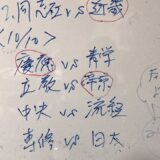 2.同志社 vs 近畿
<10/10>
慶應 vs 青学
立教 vs 帝京
中央 vs 流経
専修 vs 日大